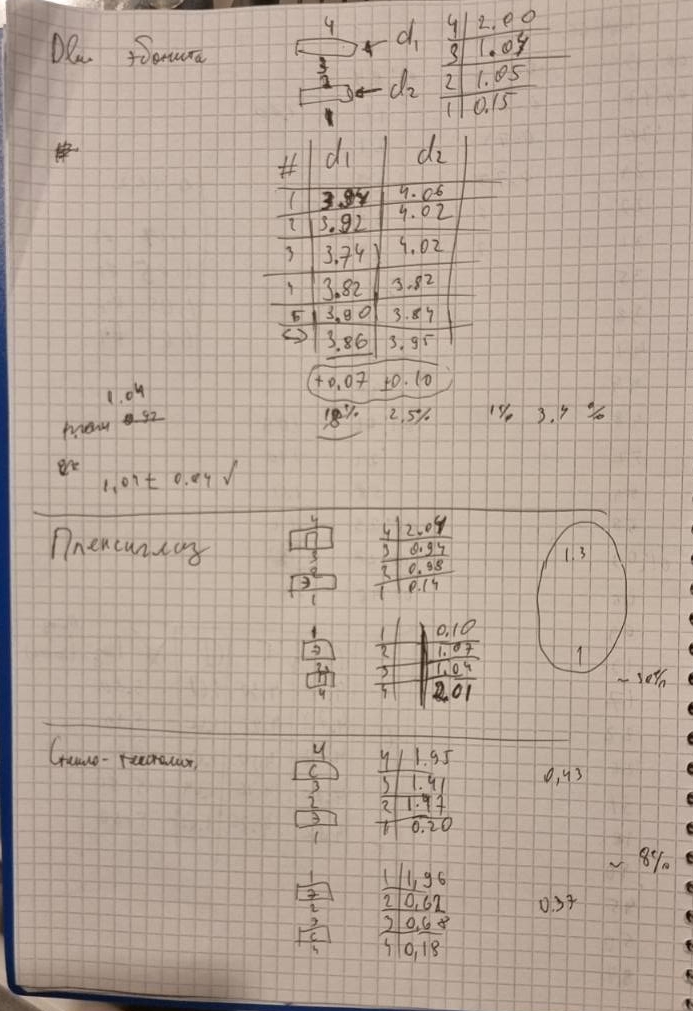 Для эбонита
4
3
2
1
d₁
d₂
4 | 2.00
3 | 1.04
2 | 1.05
1 | 0.15
# | d₁ | d₂
1 | 3.94 | 4.06
2 | 3.92 | 4.02
3 | 3.74 | 4.02
4 | 3.82 | 3.82
5 | 3.90 | 3.84
<> | 3.86 | 3.95
±0.07 ±0.10
1.8% 2.5% 1% 3.4 %
1.04
1,04 ± 0.04 ✓
Плексиглаз
4
П
3
2
Э
1
4 | 2.04
3 | 0.94
2 | 0.98
1 | 0.14
1.3
1
1
Э
2
3
П
4
1 | 0.10
2 | 1.07
3 | 1.04
4 | 2.01
~ 30%
Стекло-текстолит
4
С
3
2
Э
1
4 | 1.95
3 | 1.41
2 | 1.47
1 | 0.20
0,43
~ 8%
1
Э
2
3
С
4
1 | 1,96
2 | 0,62
3 | 0,68
4 | 0,18
0.37